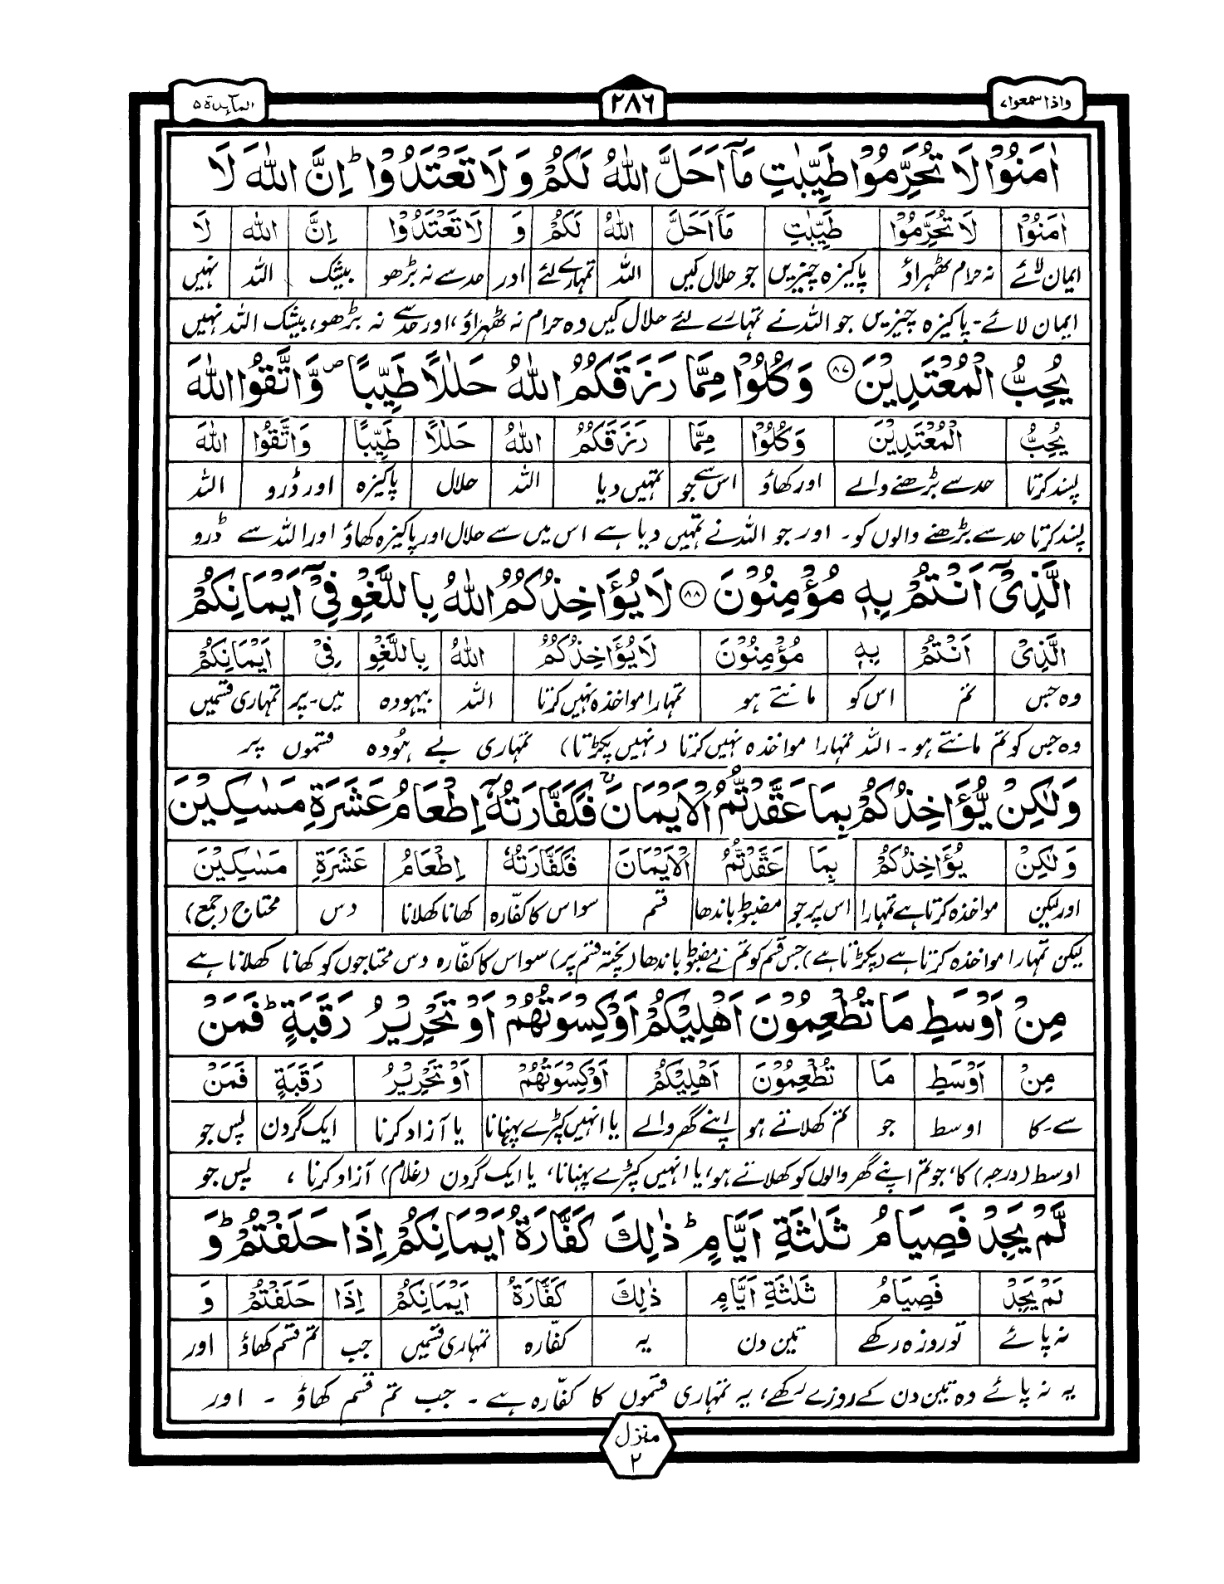 واذا سمعوا ٧
٢٨٦
المآىِٕدة ٥
اٰمَنُوْا لَا تُحَرِّمُوْا طَيِّبٰتِ مَاۤ اَحَلَّ اللّٰهُ لَكُمْ وَ لَا تَعْتَدُوْا ؕ اِنَّ اللّٰهَ لَا
اٰمَنُوْا لَا تُحَرِّمُوْا طَيِّبٰتِ مَاۤ اَحَلَّ اللّٰهُ لَكُمْ وَ لَا تَعْتَدُوْا اِنَّ اللّٰهَ لَا
ایمان لائے نہ حرام ٹھہراؤ پاکیزہ چیزیں جو حلال کیں اللہ تمہارے لئے اور حد سے نہ بڑھو بیشک اللہ نہیں
ایمان لائے۔ پاکیزہ چیزیں جو اللہ نے تمہارے لئے حلال کیں وہ حرام نہ ٹھہراؤ، اور حد سے نہ بڑھو، بیشک اللہ نہیں
يُحِبُّ الْمُعْتَدِيْنَ ﴿٨٧﴾ وَ كُلُوْا مِمَّا رَزَقَكُمُ اللّٰهُ حَلٰلًا طَيِّبًا ۪ وَّ اتَّقُوا اللّٰهَ
يُحِبُّ الْمُعْتَدِيْنَ وَكُلُوْا مِمَّا رَزَقَكُمُ اللّٰهُ حَلٰلًا طَيِّبًا وَاتَّقُوا اللّٰهَ
پسند کرتا حد سے بڑھنے والے اور کھاؤ اس سے جو تمہیں دیا اللہ حلال پاکیزہ اور ڈرو اللہ
پسند کرتا حد سے بڑھنے والوں کو۔ اور جو اللہ نے تمہیں دیا ہے اس میں سے حلال اور پاکیزہ کھاؤ اور اللہ سے ڈرو
الَّذِيْۤ اَنْتُمْ بِهٖ مُؤْمِنُوْنَ ﴿٨٨﴾ لَا يُؤَاخِذُكُمُ اللّٰهُ بِاللَّغْوِ فِيْۤ اَيْمَانِكُمْ
الَّذِيْ اَنْتُمْ بِهٖ مُؤْمِنُوْنَ لَا يُؤَاخِذُكُمُ اللّٰهُ بِاللَّغْوِ فِيْ اَيْمَانِكُمْ
وہ جس تم اس کو مانتے ہو تمہارا مواخذہ نہیں کرتا اللہ بیہودہ میں۔پر تمہاری قسمیں
وہ جس کو تم مانتے ہو۔ اللہ تمہارا مواخذہ نہیں کرتا (نہیں پکڑتا) تمہاری بے ہودہ قسموں پر
وَ لٰكِنْ يُّؤَاخِذُكُمْ بِمَا عَقَّدْتُّمُ الْاَيْمَانَ ۚ فَكَفَّارَتُهٗۤ اِطْعَامُ عَشَرَةِ مَسٰكِيْنَ
وَ لٰكِنْ يُؤَاخِذُكُمْ بِمَا عَقَّدْتُّمُ الْاَيْمَانَ فَكَفَّارَتُهٗ اِطْعَامُ عَشَرَةِ مَسٰكِيْنَ
اور لیکن مواخذہ کرتا ہے تمہارا اس پر جو مضبوط باندھا قسم سو اس کا کفّارہ کھانا کھلانا دس محتاج (جمع)
لیکن تمہارا مواخذہ کرتا ہے (پکڑتا ہے) جس قسم کو تم نے مضبوط باندھا (پختہ قسم پر) سو اس کا کفّارہ دس محتاجوں کو کھانا کھلانا ہے
مِنْ اَوْسَطِ مَا تُطْعِمُوْنَ اَهْلِيْكُمْ اَوْ كِسْوَتُهُمْ اَوْ تَحْرِيْرُ رَقَبَةٍ ؕ فَمَنْ
مِنْ اَوْسَطِ مَا تُطْعِمُوْنَ اَهْلِيْكُمْ اَوْ كِسْوَتُهُمْ اَوْ تَحْرِيْرُ رَقَبَةٍ فَمَنْ
سے۔کا اوسط جو تم کھلاتے ہو اپنے گھر والے یا انہیں کپڑے پہنانا یا آزاد کرنا ایک گردن پس جو
اوسط (درجہ) کا، جو تم اپنے گھر والوں کو کھلاتے ہو، یا انہیں کپڑے پہنانا، یا ایک گردن (غلام) آزاد کرنا، پس جو
لَّمْ يَجِدْ فَصِيَامُ ثَلٰثَةِ اَيَّامٍ ؕ ذٰلِكَ كَفَّارَةُ اَيْمَانِكُمْ اِذَا حَلَفْتُمْ ؕ وَ
لَمْ يَجِدْ فَصِيَامُ ثَلٰثَةِ اَيَّامٍ ذٰلِكَ كَفَّارَةُ اَيْمَانِكُمْ اِذَا حَلَفْتُمْ وَ
نہ پائے تو روزہ رکھے تین دن یہ کفّارہ تمہاری قسمیں جب تم قسم کھاؤ اور
یہ نہ پائے وہ تین دن کے روزے رکھے، یہ تمہاری قسموں کا کفّارہ ہے۔ جب تم قسم کھاؤ ۔ اور
منزل
٢